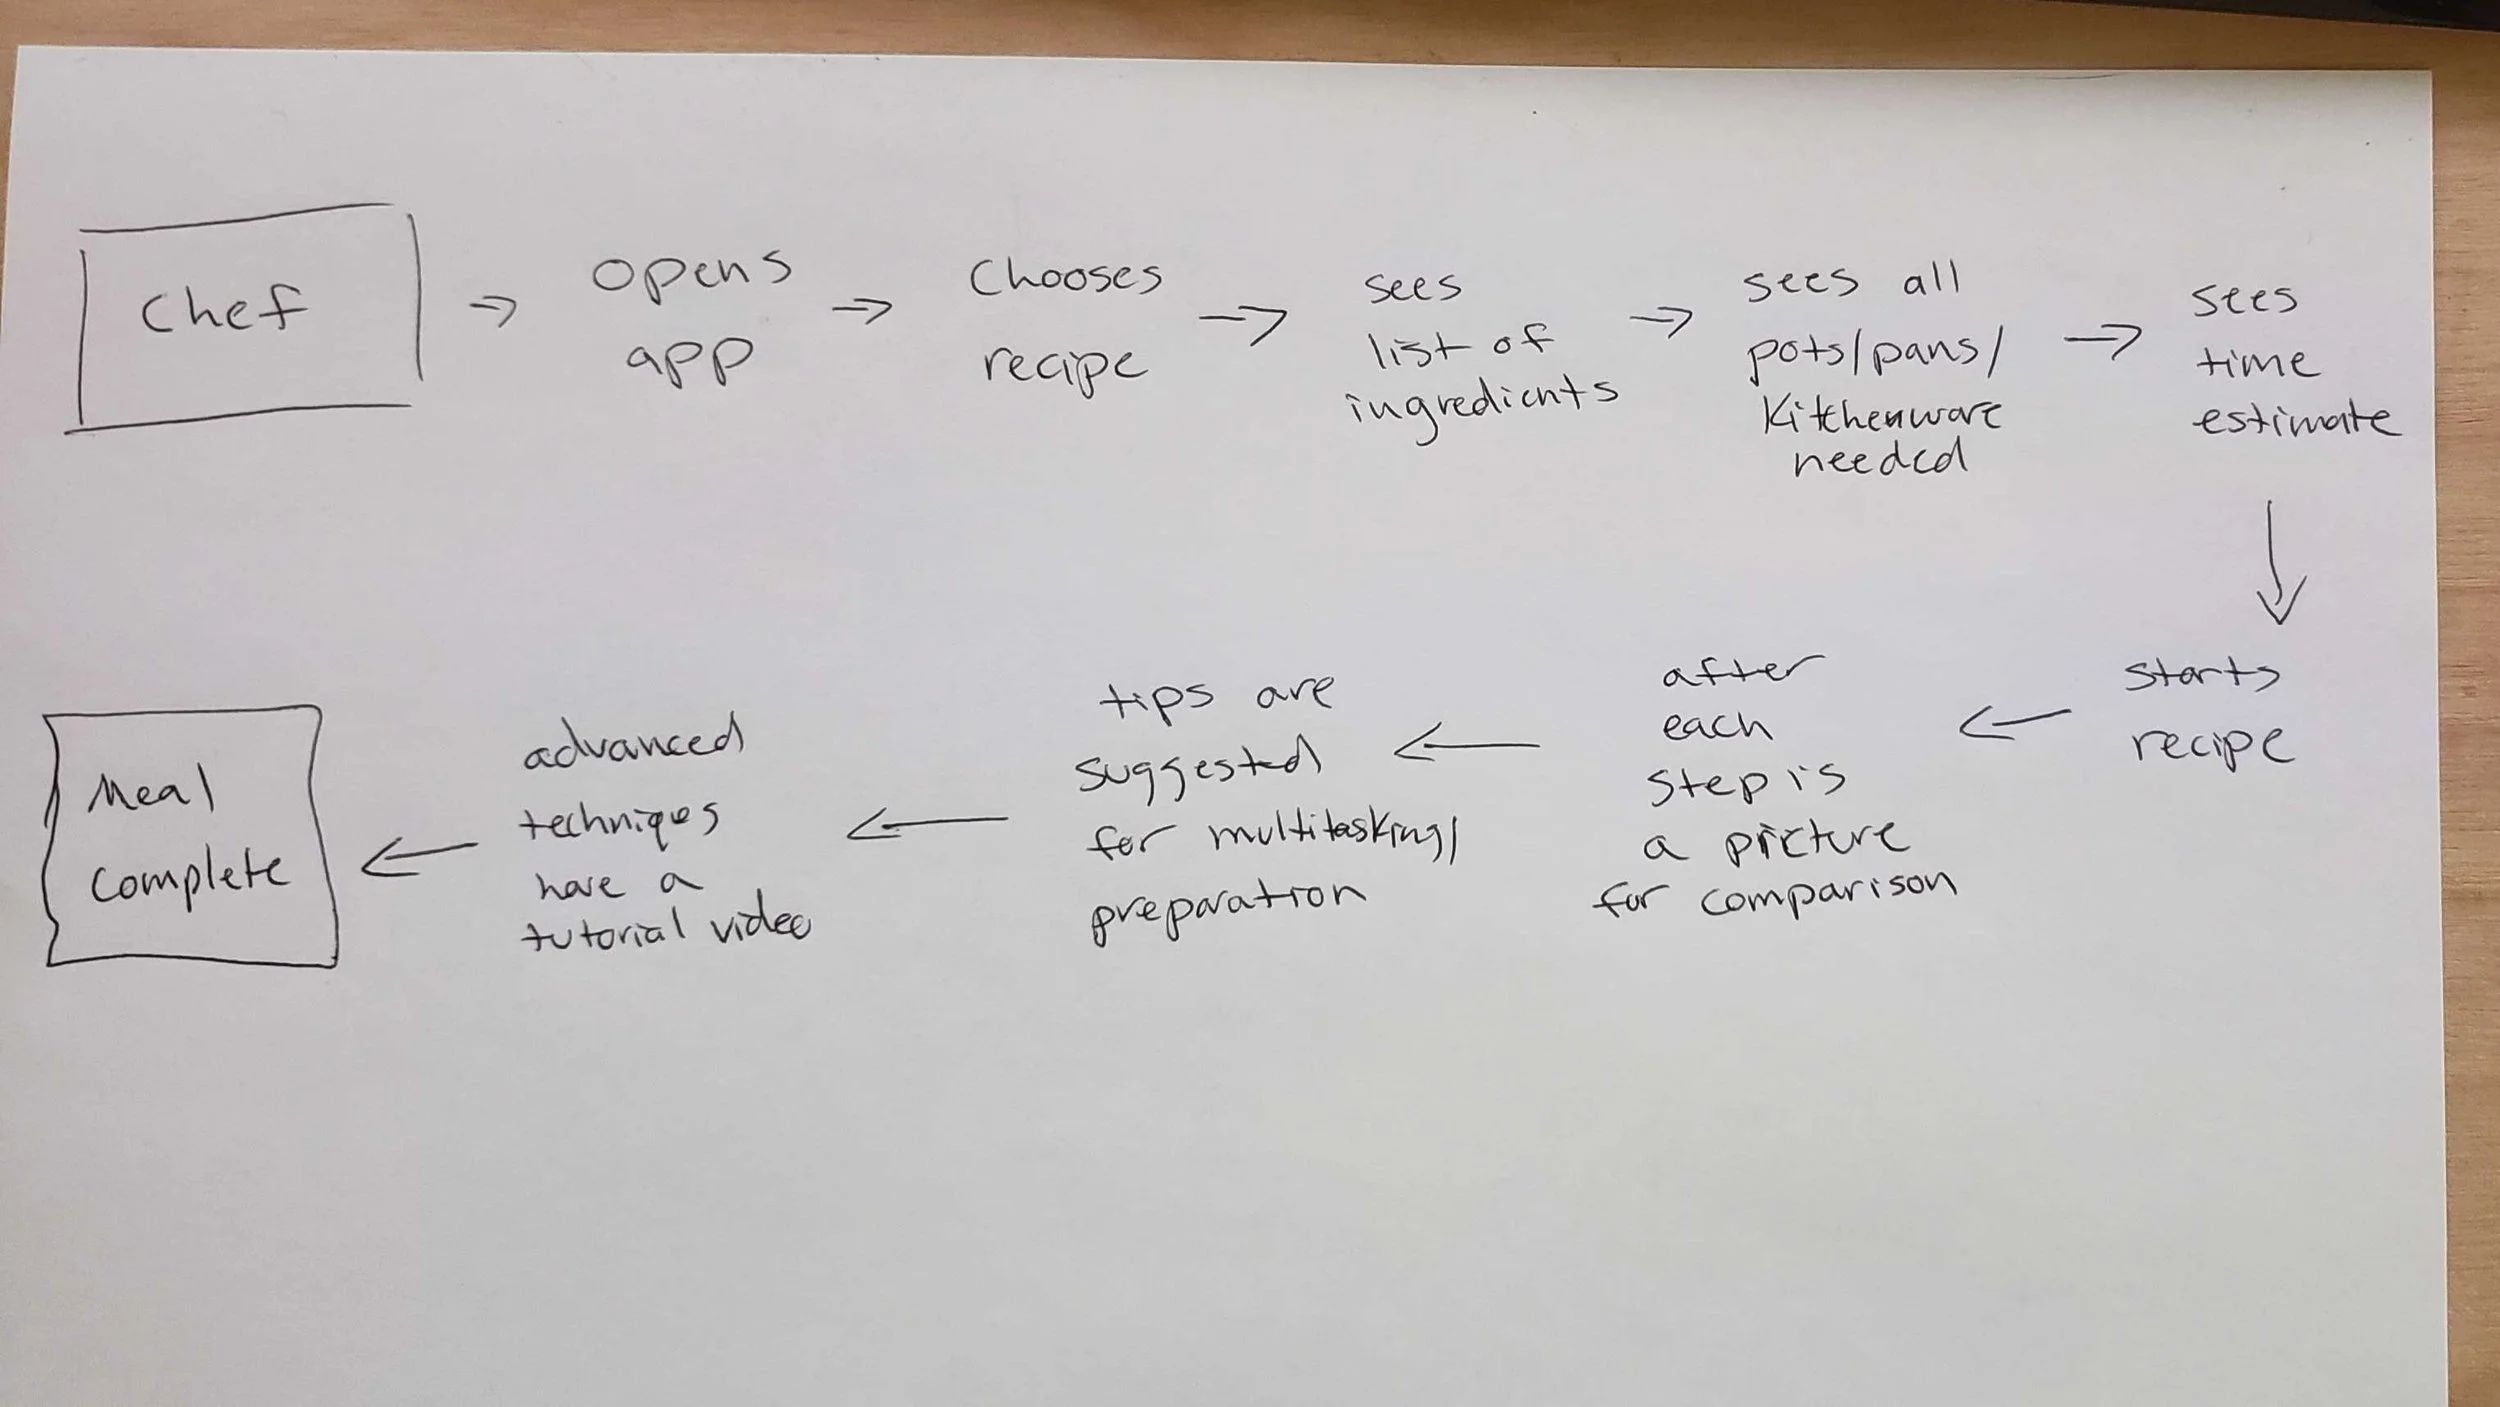 Chef
opens
app
Chooses
recipe
sees
list of
ingredients
sees all
pots/pans/
Kitchenware
needed
sees
time
estimate
starts
recipe
after
each
step is
a picture
for comparison
tips are
suggested
for multitasking/
preparation
advanced
techniques
have a
tutorial video
Meal
Complete